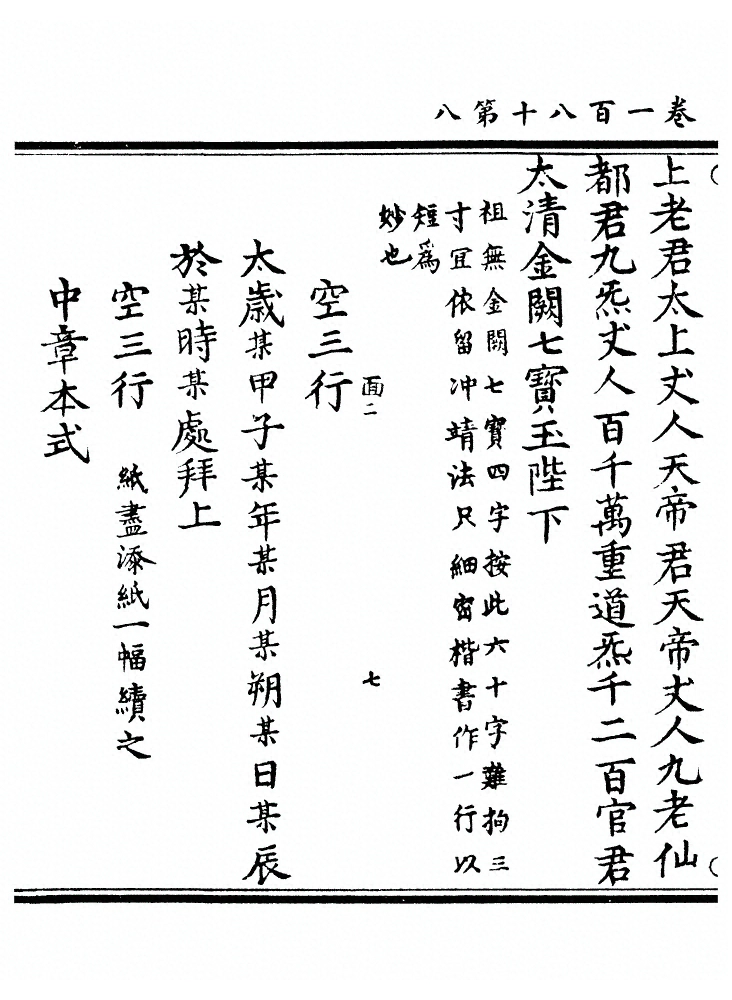 卷一百八十第八
上老君太上丈人天帝君天帝丈人九老仙
都君九炁丈人百千萬重道炁千二百官君
太清金闕七寶玉陛下
祖無金闕七寶四字按此六十字難拘三
寸宜依留冲靖法尺細密楷書作一行以
短爲
妙也
面二
七
空三行
太歲某甲子某年某月某朔某日某辰
於某時某處拜上
空三行 紙盡添紙一幅續之
中章本式